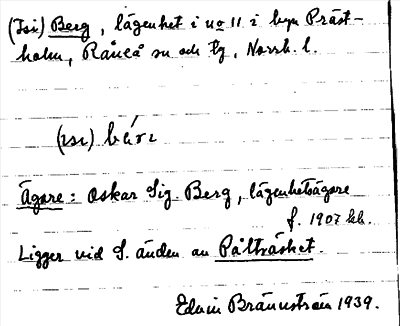 (Isi) Berg, lägenhet i no 11 i byn Präst-
holm, Råneå sn och tg, Norrb. l.
(isi)
Ägare: Oskar Sig. Berg, lägenhetsägare
f. 1907 hb.
Ligger vid S. änden av Påltträsket.
Edvin Brännström 1939.